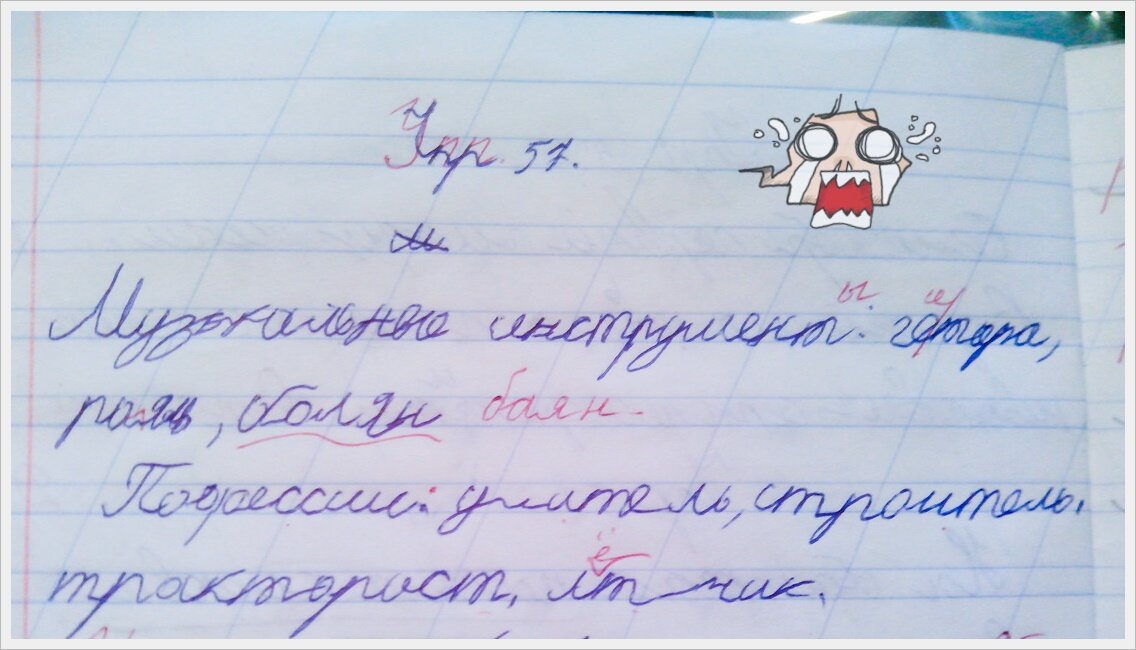 Упр. 57.
Музыкальные инструменты: гетара,
рояль, болян баян.
Пофессии: учитель, строитель.
тракторост, лтчик.